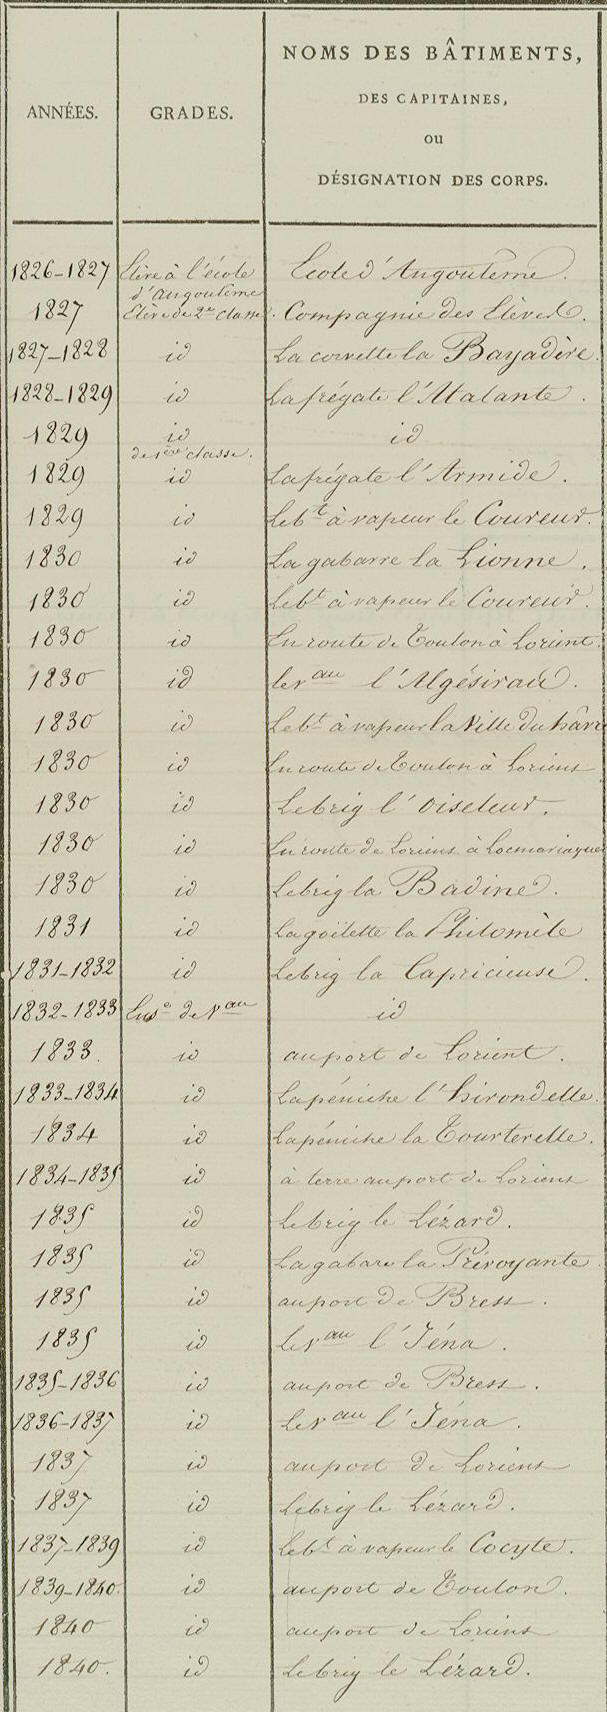 ANNÉES. GRADES. NOMS DES BÂTIMENTS,
DES CAPITAINES,
OU
DÉSIGNATION DES CORPS.
1826-1827 Elève à l'école Ecole d'Angoulême.
d'angoulême
1827 Elève de 2me classe. Compagnie des Elèves.
1827-1828 id La corvette la Bayadère.
1828-1829 id La frégate l'Atalante.
1829 id id
de 1ère classe.
1829 id La frégate l'Armide.
1829 id Le bt à vapeur le Coureur.
1830 id La gabarre la Lionne.
1830 id Le bt à vapeur le Coureur.
1830 id En route de Toulon à Lorient.
1830 id le vau l'Algésiras.
1830 id Le bt à vapeur la Ville du hâvre
1830 id En route de Toulon à Lorient
1830 id Le brig l'Oiseleur.
1830 id En route de Lorient à Locmariaquer
1830 id Le brig la Badine.
1831 id La goëlette la Philomèle
1831-1832 id Le brig la Capricieuse.
1832-1833 Ense de vau id
1833. id au port de Lorient.
1833-1834 id La péniche l'hirondelle.
1834 id La péniche la Tourterelle.
1834-1835 id à terre au port de Lorient
1835 id Le brig le Lézard.
1835 id La gabare la Prévoyante.
1835 id au port de Brest.
1835 id Le vau l'Iéna.
1835-1836 id au port de Brest.
1836-1837 id Le vau l'Iéna.
1837 id au port de Lorient
1837 id Le brig le Lézard.
1837-1839 id Le bt à vapeur le Cocyte.
1839-1840. id au port de Toulon.
1840 id au port de Lorient
1840. id Le brig le Lézard.